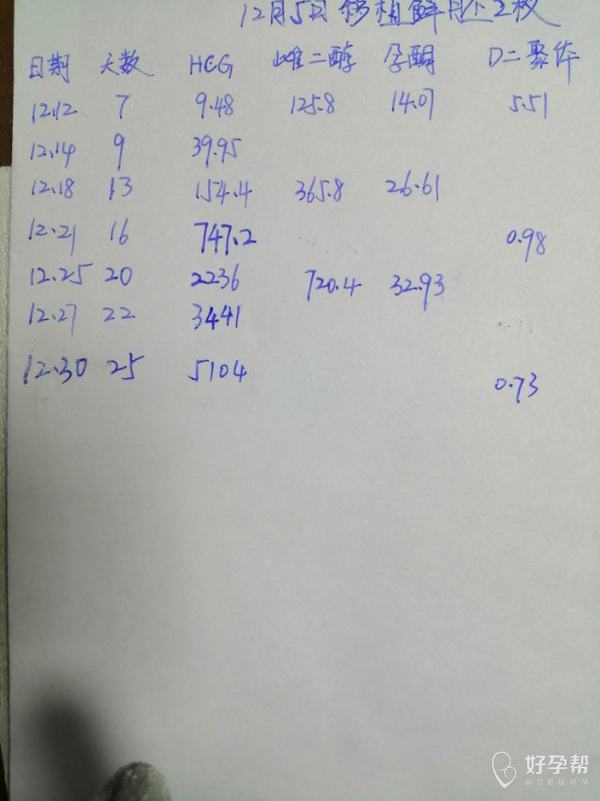 12月5日移植鲜胚2枚
日期 天数 HCG 雌二醇 孕酮 D二聚体
12.12 7 9.48 125.8 14.07 5.51
12.14 9 39.95
12.18 13 154.4 365.8 26.61
12.21 16 747.2 0.98
12.25 20 2236 720.4 32.93
12.27 22 3441
12.30 25 5104 0.73
好孕帮